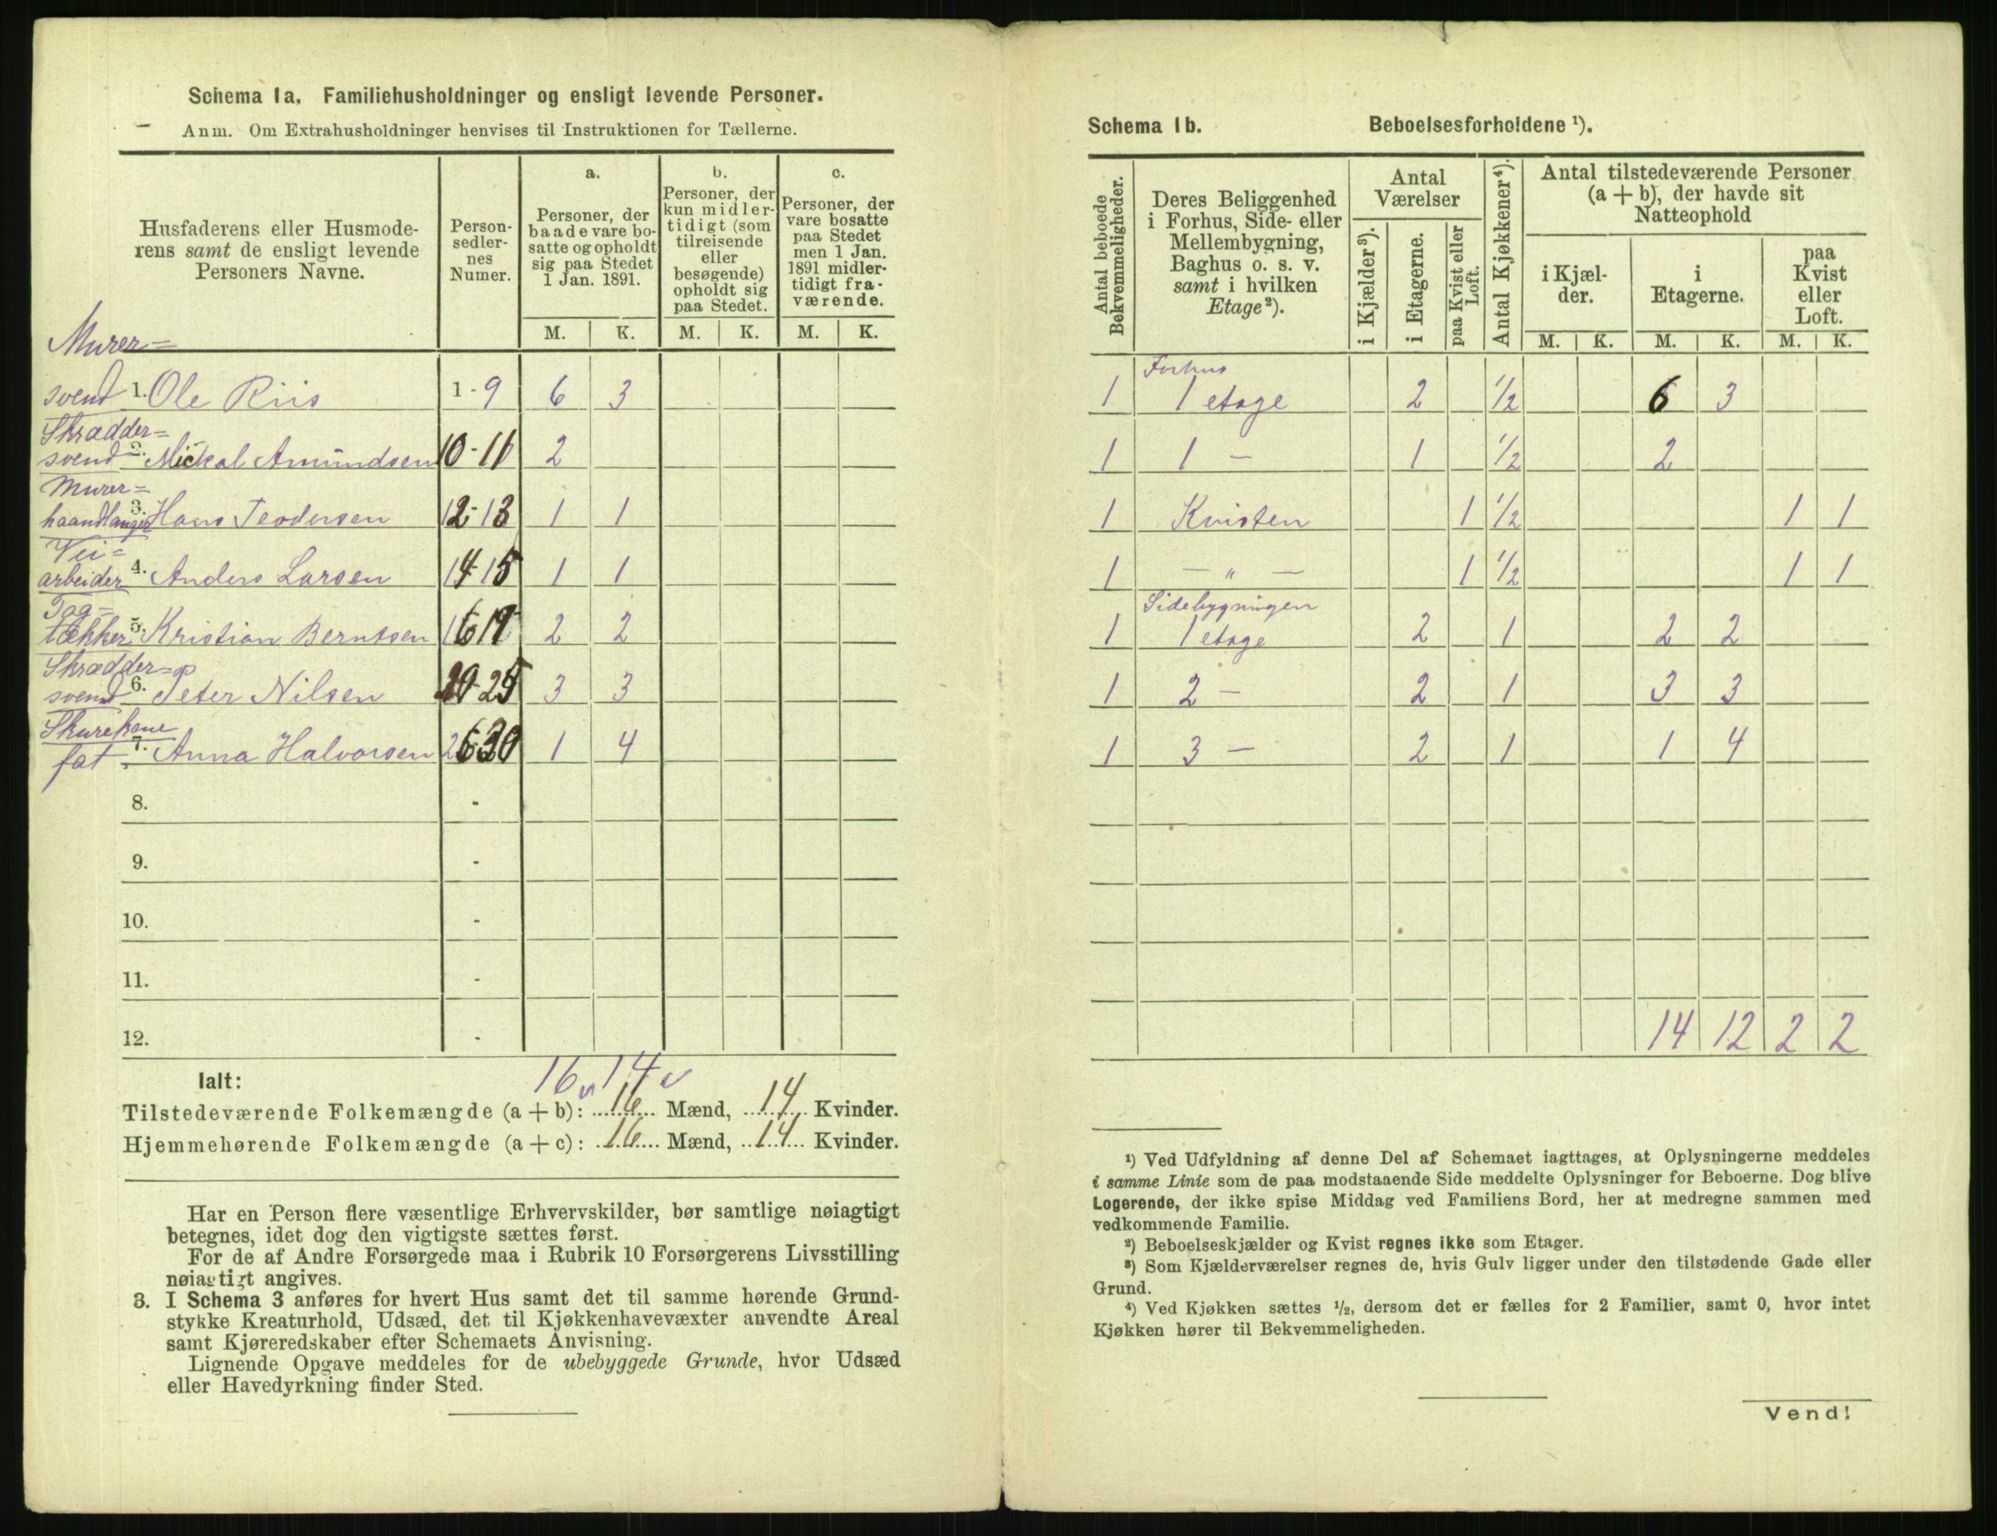 Schema 1a. Familiehusholdninger og ensligt levende Personer.
Anm. Om Extrahusholdninger henvises til Instruktionen for Tællerne.
Husfaderens eller Husmoderens samt de ensligt levende Personers Navne.
Personsedlernes Numer.
a.
Personer, der baade vare bosatte og opholdt sig paa Stedet 1 Jan. 1891.
b.
Personer, der kun midlertidigt (som tilreisende eller besøgende) opholdt sig paa Stedet.
c.
Personer, der vare bosatte paa Stedet men 1 Jan. 1891 midlertidigt fraværende.
M. K. M. K. M. K.
Murer=
svend 1. Ole Riis 1-9 6 3
Skrædder=
svend 2. Mickal Amundsen 10-11 2
Murer=
haandlanger 3. Hans Teodersen 12-13 1 1
Vei=
arbeider 4. Anders Larsen 14-15 1 1
Tag=
tækker 5. Kristian Berntsen 16-19 2 2
Skrædder=
svend 6. Peter Nilsen 20-25 3 3
Skurekone
fat. 7. Anna Halvorsen 26-30 1 4
8. -
9. -
10. -
11. -
12. -
16 v 14 v
Ialt:
Tilstedeværende Folkemængde (a + b): 16 Mænd, 14 Kvinder.
Hjemmehørende Folkemængde (a + c): 16 Mænd, 14 Kvinder.
Har en Person flere væsentlige Erhvervskilder, bør samtlige nøiagtigt
betegnes, idet dog den vigtigste sættes først.
For de af Andre Forsørgede maa i Rubrik 10 Forsørgerens Livsstilling
nøiagtigt angives.
3. I Schema 3 anføres for hvert Hus samt det til samme hørende Grund-
stykke Kreaturhold, Udsæd, det til Kjøkkenhavevæxter anvendte Areal
samt Kjøreredskaber efter Schemaets Anvisning.
Lignende Opgave meddeles for de ubebyggede Grunde, hvor Udsæd
eller Havedyrkning finder Sted.
Schema 1b. Beboelsesforholdene ¹).
Antal beboede Bekvemmeligheder.
Deres Beliggenhed i Forhus, Side- eller Mellembygning, Baghus o. s. v. samt i hvilken Etage ²).
Antal Værelser
i Kjælder ³).
i Etagerne.
paa Kvist eller Loft.
Antal Kjøkkener ⁴).
Antal tilstedeværende Personer (a + b), der havde sit Natteophold
i Kjælder.
i Etagerne.
paa Kvist eller Loft.
M. K. M. K. M. K.
Forhus
1 1 etage 2 1/2 6 3
1 1 — 1 1/2 2
1 Kvisten 1 1/2 1 1
1 — " — 1 1/2 1 1
Sidebygningen
1 1 etage 2 1 2 2
1 2 — 2 1 3 3
1 3 — 2 1 1 4
14 12 2 2
¹) Ved Udfyldning af denne Del af Schemaet iagttages, at Oplysningerne meddeles
i samme Linie som de paa modstaaende Side meddelte Oplysninger for Beboerne. Dog blive
Logerende, der ikke spise Middag ved Familiens Bord, her at medregne sammen med
vedkommende Familie.
²) Beboelseskjælder og Kvist regnes ikke som Etager.
³) Som Kjælderværelser regnes de, hvis Gulv ligger under den tilstødende Gade eller
Grund.
⁴) Ved Kjøkken sættes 1/2, dersom det er fælles for 2 Familier, samt 0, hvor intet
Kjøkken hører til Bekvemmeligheden.
Vend!